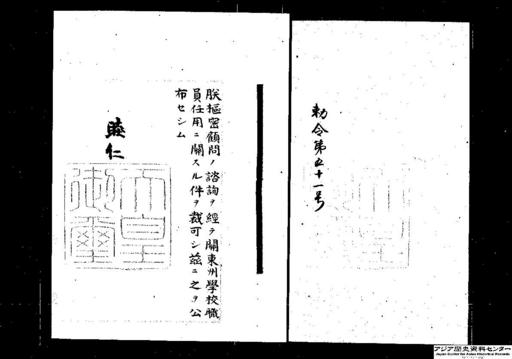 勅令第五十一号
朕枢密顧問ノ諮詢ヲ経テ関東州学校職
員任用ニ関スル件ヲ裁可シ茲ニ之ヲ公
布セシム
睦仁
天皇
御璽
アジア歴史資料センター
Japan Center for Asian Historical Records